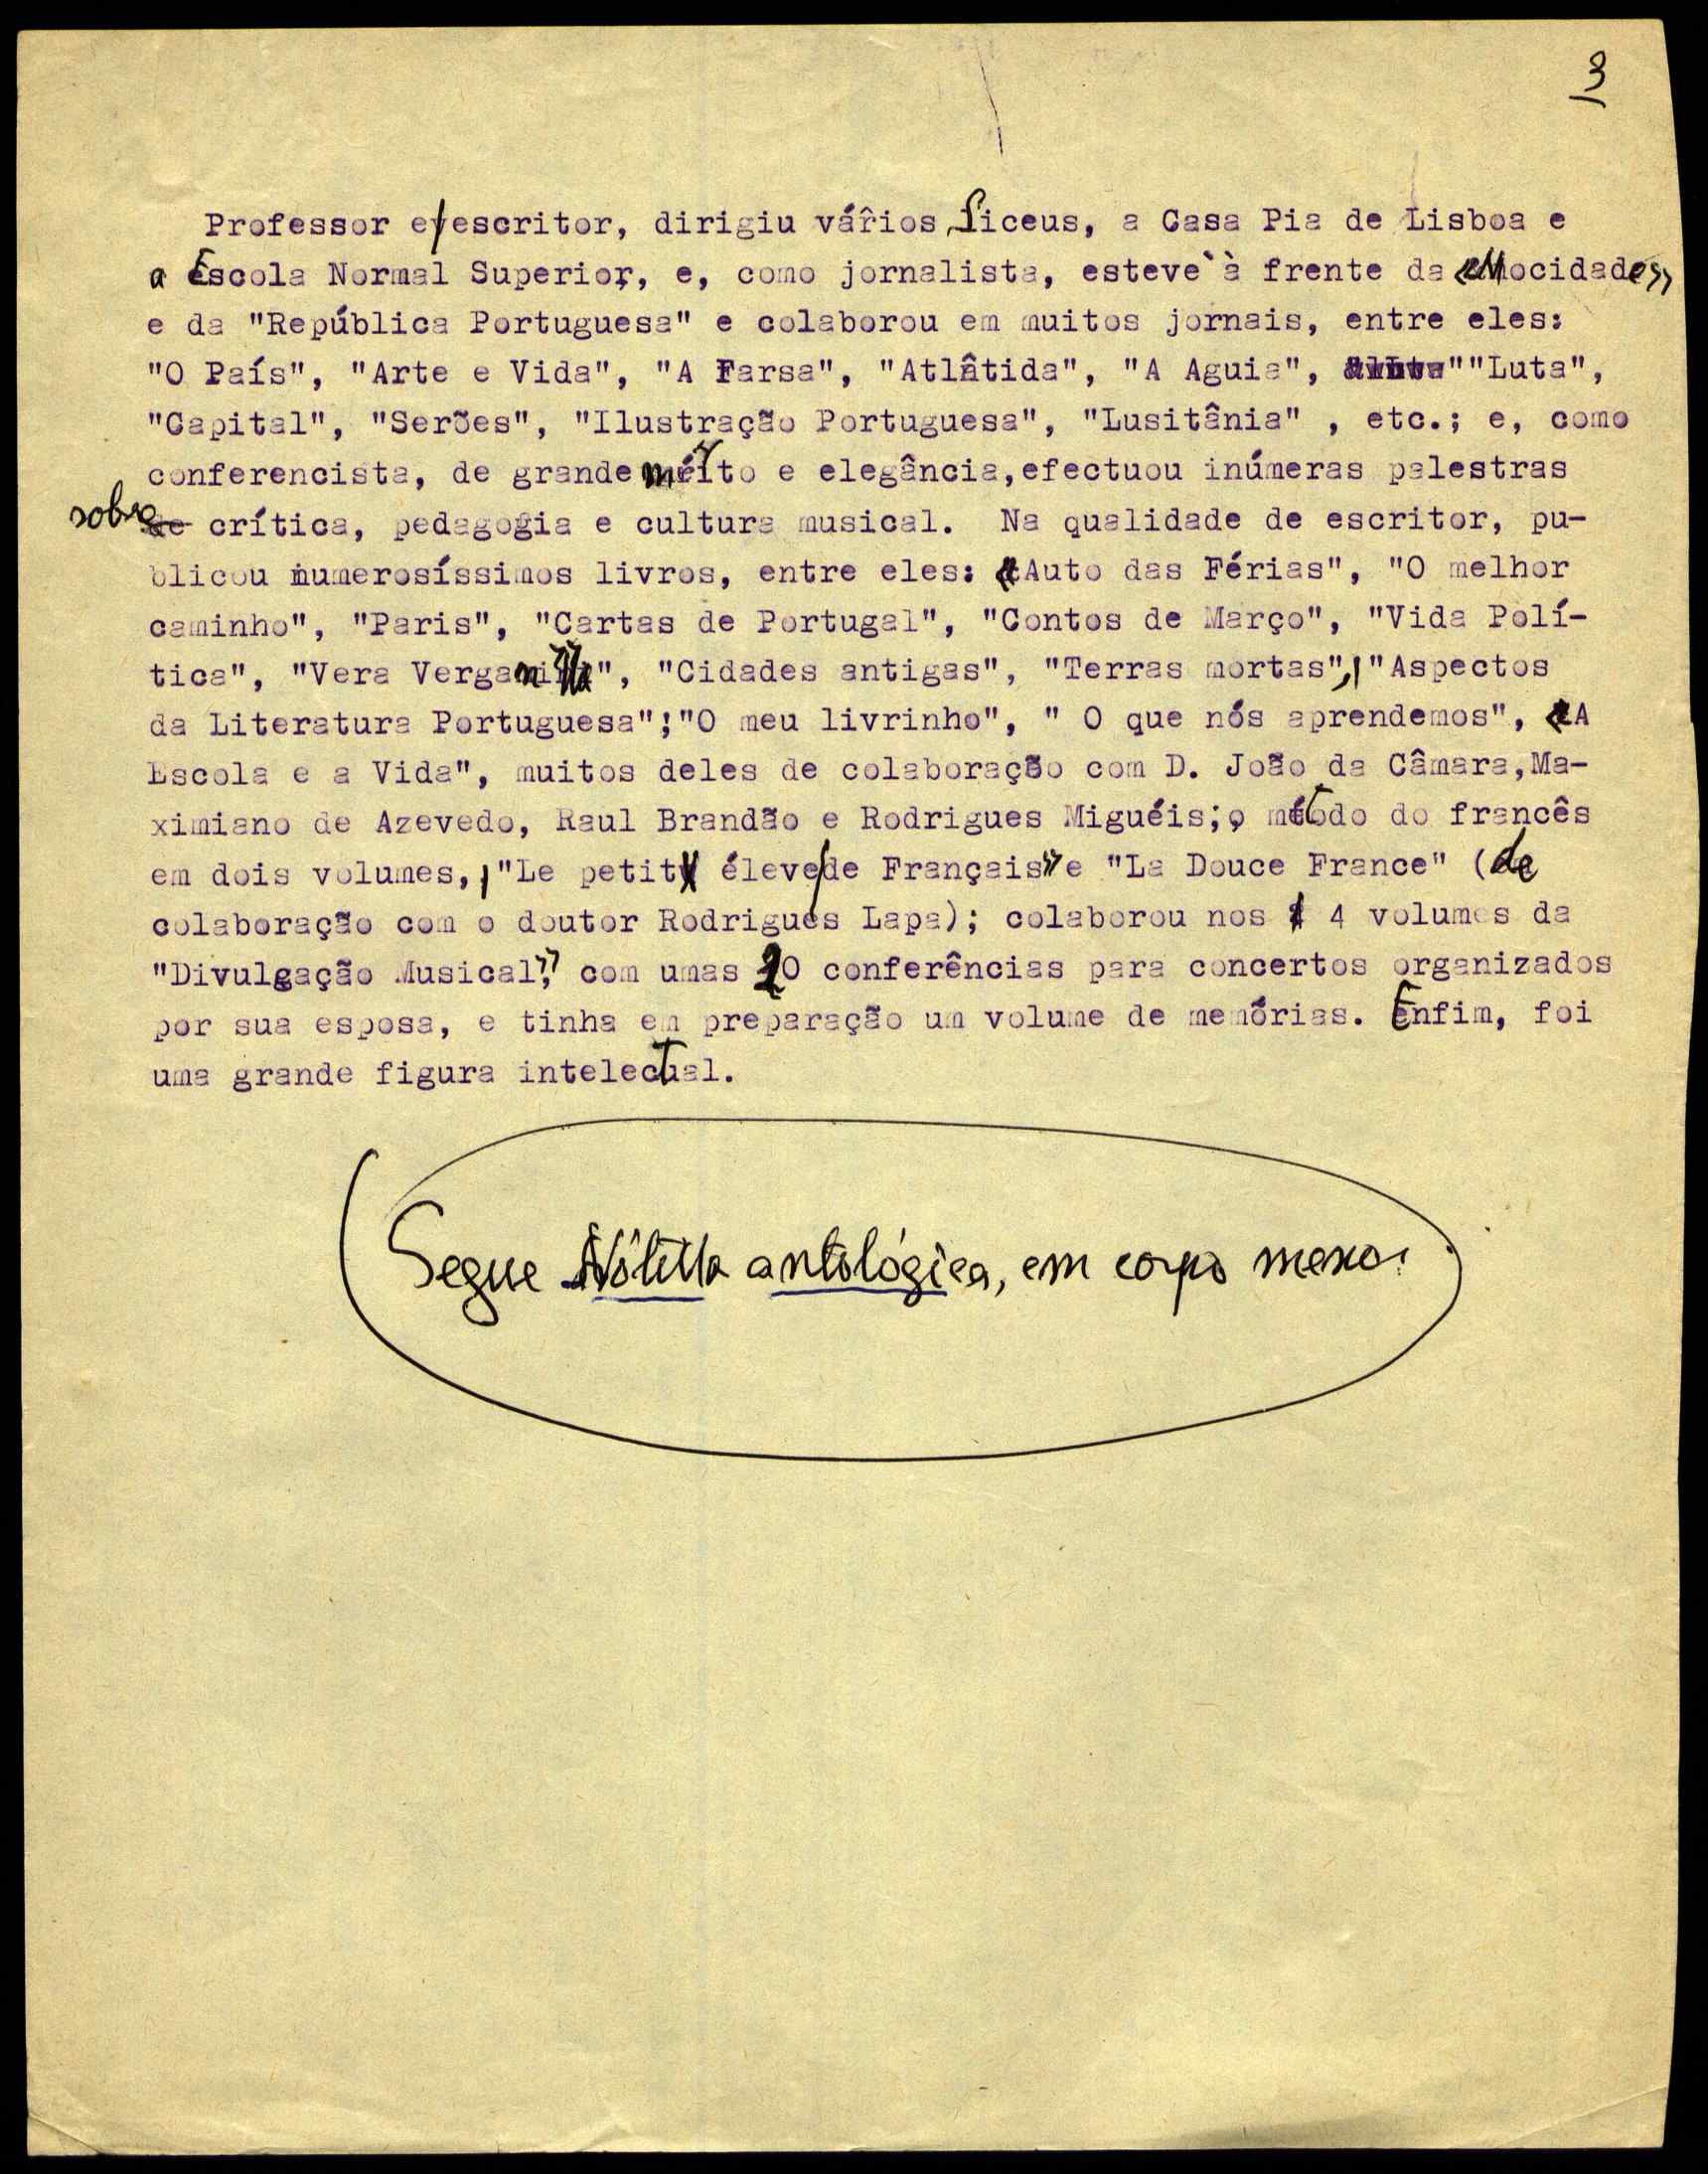 3
Professor e escritor, dirigiu vários liceus, a Casa Pia de Lisboa e
a Escola Normal Superior, e, como jornalista, esteve à frente da «Mocidade»
e da "República Portuguesa" e colaborou em muitos jornais, entre eles:
"O País", "Arte e Vida", "A Farsa", "Atlâtida", "A Aguia", "Luta",
"Capital", "Serões", "Ilustração Portuguesa", "Lusitânia" , etc.; e, como
conferencista, de grande mérito e elegância, efectuou inúmeras palestras
sobre crítica, pedagogia e cultura musical. Na qualidade de escritor, pu-
blicou numerosíssimos livros, entre eles: «Auto das Férias", "O melhor
caminho", "Paris", "Cartas de Portugal", "Contos de Março", "Vida Polí-
tica", "Vera", "Cidades antigas", "Terras mortas", "Aspectos
da Literatura Portuguesa"; "O meu livrinho", " O que nós aprendemos", «A
Escola e a Vida", muitos deles de colaboração com D. João da Câmara, Ma-
ximiano de Azevedo, Raul Brandão e Rodrigues Miguéis; o método do francês
em dois volumes, "Le petit éleve de Français» e "La Douce France" (de
colaboração com o doutor Rodrigues Lapa); colaborou nos 4 volumes da
"Divulgação Musical», com umas 20 conferências para concertos organizados
por sua esposa, e tinha em preparação um volume de memórias. Enfim, foi
uma grande figura intelectual.
Segue antológica, em corpo menor